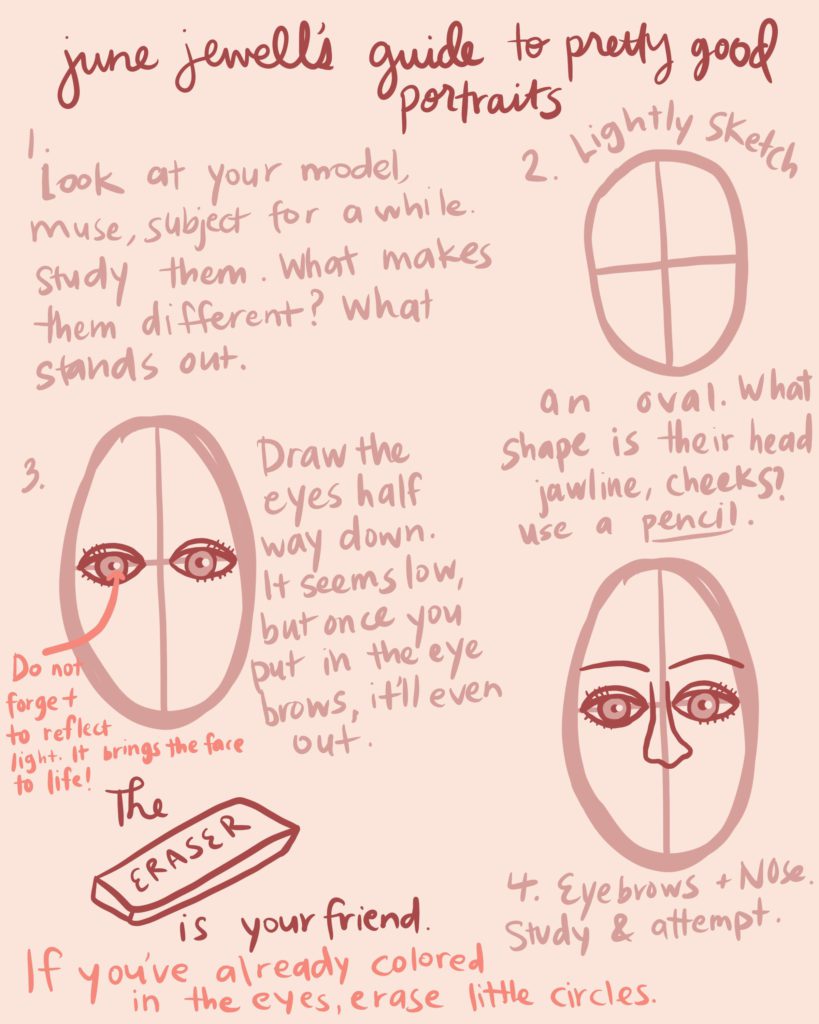 june jewell's guide to pretty good
portraits
1.
Look at your model,
muse, subject for a while.
study them. What makes
them different? What
stands out.
2. Lightly Sketch
an oval. What
shape is their head
jawline, cheeks?
use a pencil.
3.
Draw the
eyes half
way down.
It seems low,
but once you
put in the eye
brows, it'll even
out.
Do not
forget
to reflect
light. It brings the face
to life!
The
ERASER
is your friend.
If you've already colored
in the eyes, erase little circles.
4. Eyebrows + Nose.
Study & attempt.